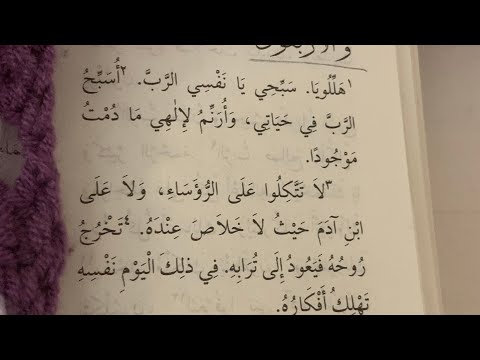 والأربعون
١هَلِّلُويَا. سَبِّحِي يَا نَفْسِي الرَّبَّ. ٢أُسَبِّحُ
الرَّبَّ فِي حَيَاتِي، وَأُرَنِّمُ لِإِلٰهِي مَا دُمْتُ
مَوْجُودًا.
٣لاَ تَتَّكِلُوا عَلَى الرُّؤَسَاءِ، وَلاَ عَلَى
ابْنِ آدَمَ حَيْثُ لاَ خَلاَصَ عِنْدَهُ. ٤تَخْرُجُ
رُوحُهُ فَيَعُودُ إِلَى تُرَابِهِ. فِي ذلِكَ الْيَوْمِ نَفْسِهِ
تَهْلِكُ أَفْكَارُهُ.